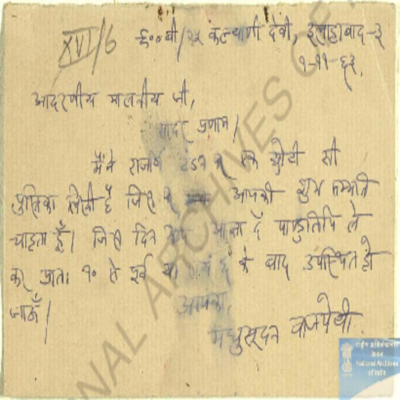 XVI/6
६००बी/२५ कल्याणी देवी, इलाहाबाद-३
१-११-६३
आदरणीय मालवीय जी,
सादर प्रणाम।
मैंने राजर्षि टंडन पर एक छोटी सी
पुस्तिका लिखी है जिस पर आपकी शुभ सम्मति
चाहता हूँ। जिस दिन आप आज्ञा दें पाण्डुलिपि ले
कर प्रातः १० से पूर्व या के बाद उपस्थित हो
जाऊँ।
आपका
मधुसूदन वाजपेयी
NAL ARCHIVES
राष्ट्रीय अभिलेखागार
भारत
National Archives
of India